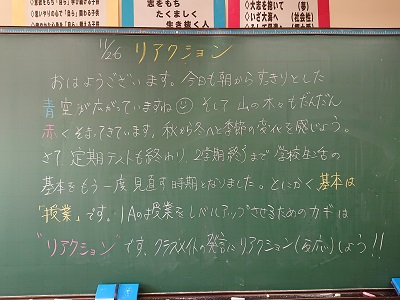 志をもち
たくましく
生き抜く人
◇大志を抱いて (夢)
◇いざ大海へ (社会性)
11/26 リアクション
おはようございます。今日も朝からすきりとした
青空が広がっていますね☺ そして山の木々もだんだん
赤くそまってきています。秋から冬へと季節の変化を感じよう。
さて定期テストも終わり 2学期終うまで学校生活の
基本をもう一度見直す時期となりました。とにかく基本は
「授業」です。1Aの授業をレベルアップさせるためのカギは
"リアクション"です、クラスメイトの発言にリアクション(反応)しよう!!